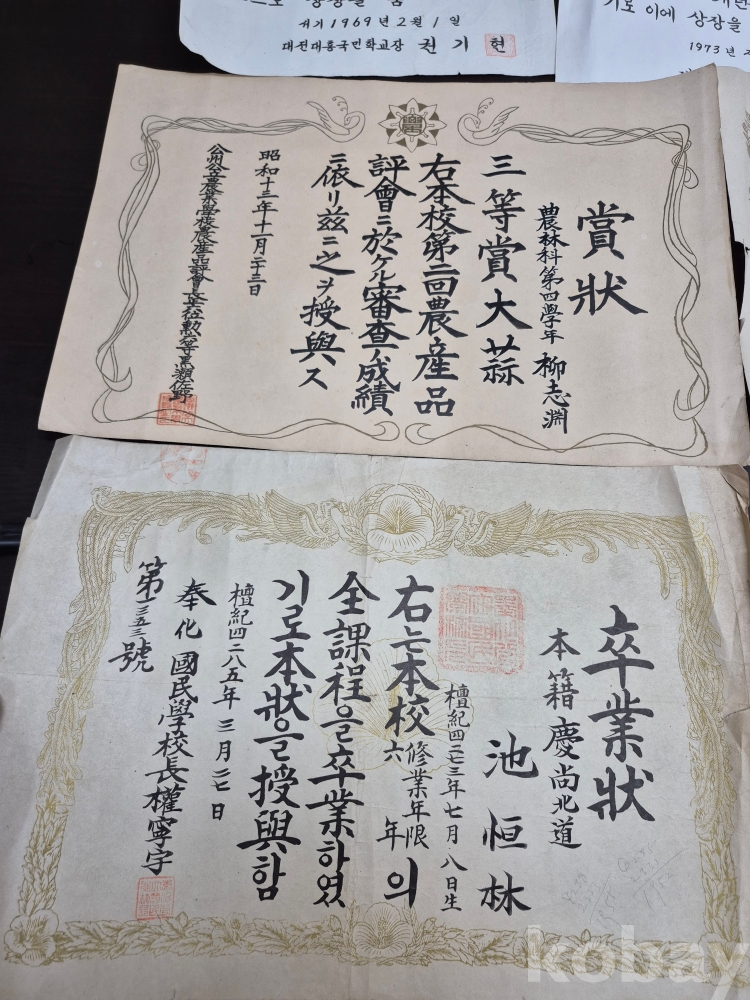 서기 1969년 2월 1일
대전대흥국민학교장 권기현
기로 이에 상장을
1973년
賞狀
農林科第四學年 柳志淵
三等賞 大蒜
右本校第二回農産品
評會ニ於ケル審査ノ成績
ニ依リ玆ニ之ヲ授與ス
昭和十三年十一月二十三日
公州公立農業學校農産品評會長
卒業狀
本籍慶尚北道
池恒林
檀紀四二七三年七月八日生
右는本校修業年限六年의
全課程을卒業하였
기로本狀을授與함
檀紀四二八五年三月二七日
奉化國民學校長權寧宇
第一三五三號
kobay